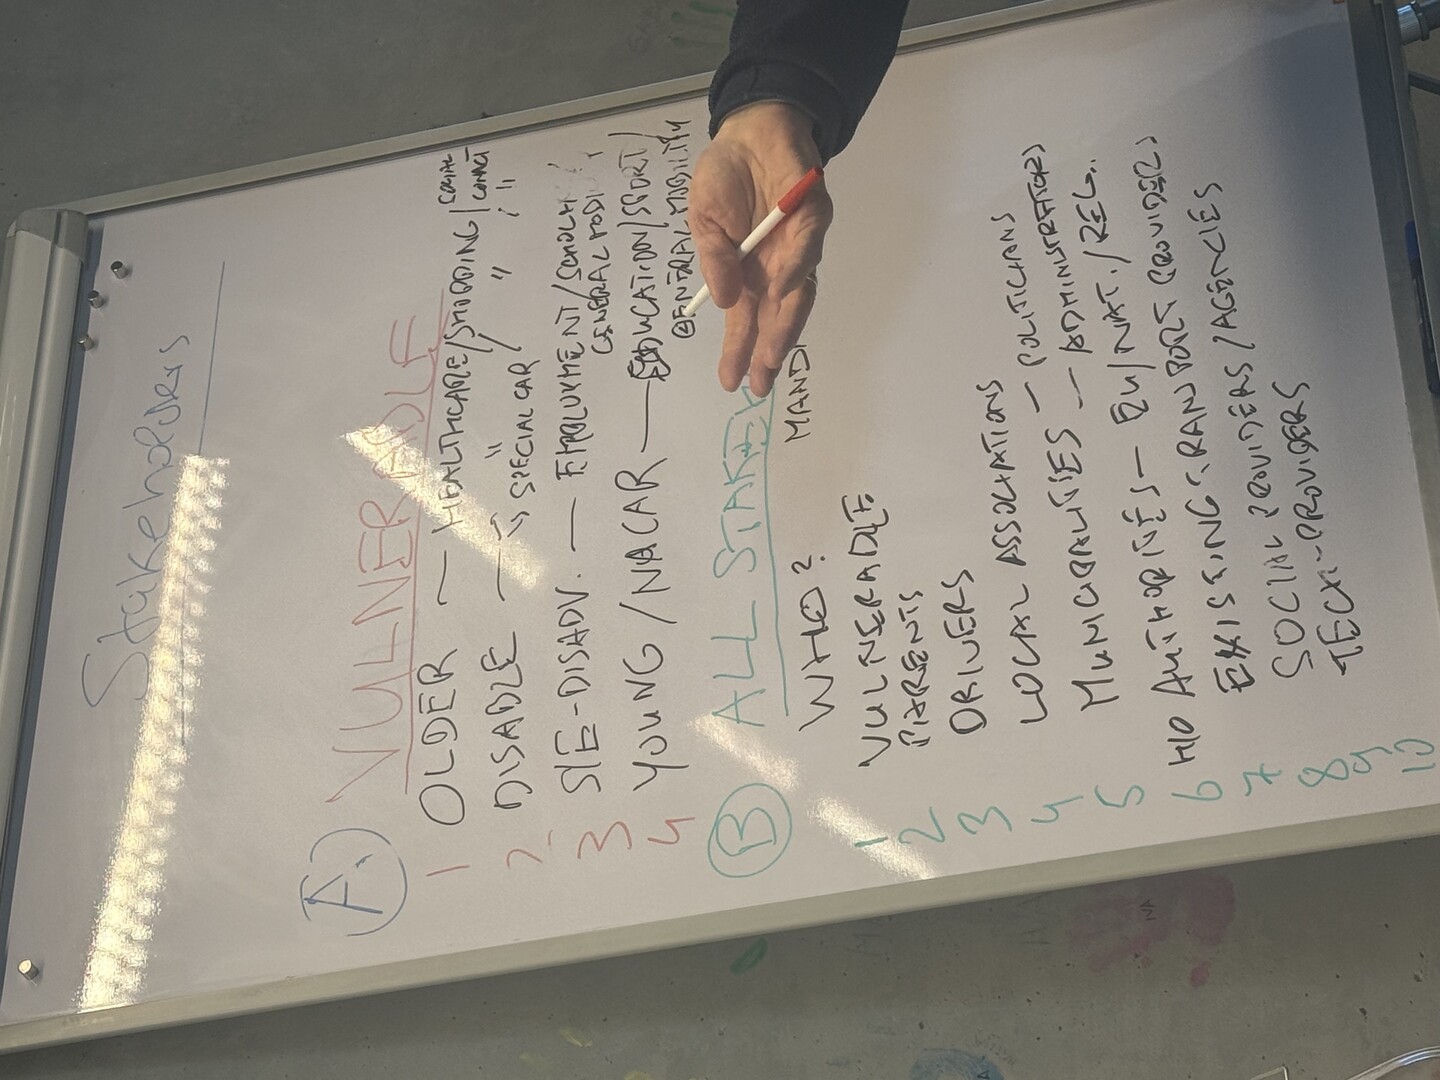 Stakeholders
A. VULNERABLE
1 OLDER — HEALTHCARE/SHOPPING/SOCIAL CONTACT
2. DISABLE — " SPECIAL CAR/ " / "
3 S/E-DISADV. — EMPLOYMENT/SCHOOL/
GENERAL MOBI
4 YOUNG/NACAR — EDUCATION/SPORT/
GENERAL MOBILITY
B ALL STAKEH
WHO? MAND
1 VULNERABLE
2 PARENTS
3 DRIVERS
4 LOCAL ASSOCIATIONS — POLITICIANS
5 MUNICIPALITIES — ADMINISTRATIONS
6 AUTHORITIES — EU/NAT./REG.
7 EXISTING TRANSPORT PROVIDERS
8 SOCIAL PROVIDERS/AGENCIES
9 TECH-PROVIDERS
10